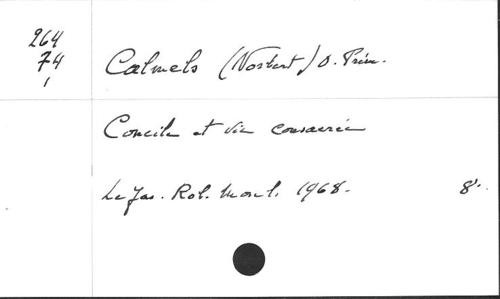 264
74
1
Calmels (Norbert) O. Prém.
Concile et vie consacrée
Le Jas. Rob. Morel. 1968.
8°.